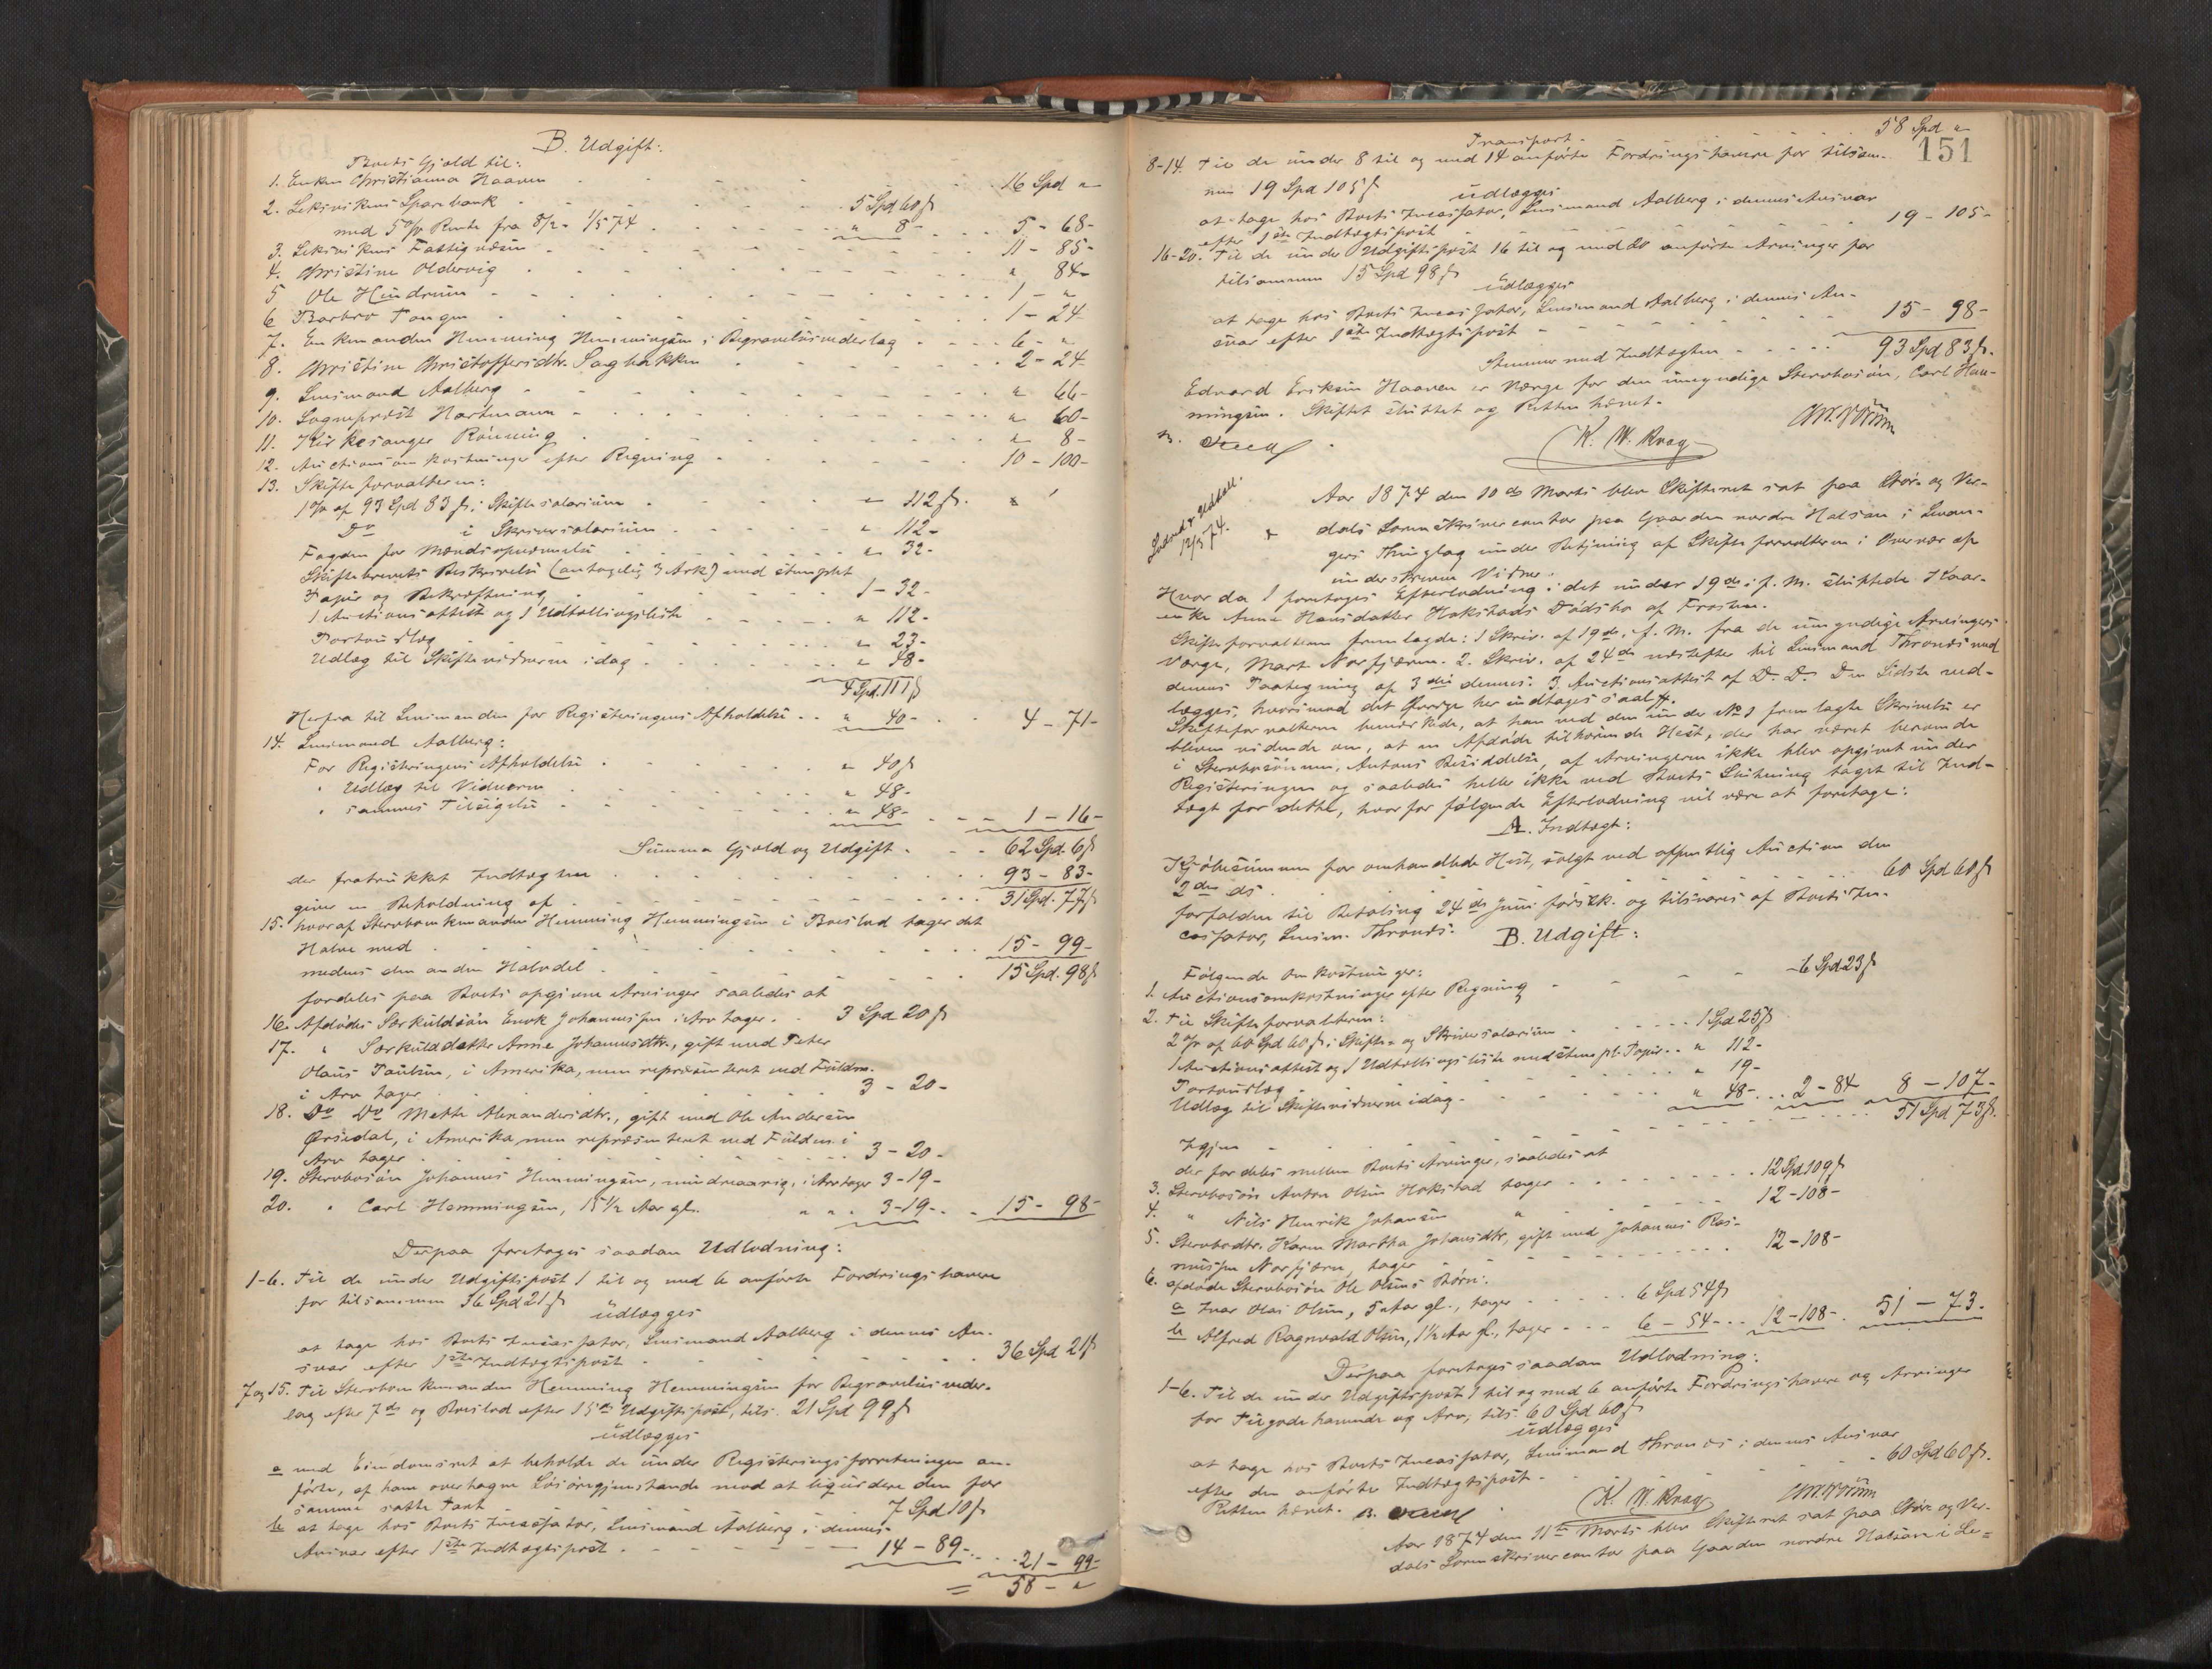 B. Udgift:
Boets Gjæld til:
1. Enken Christianna Haaven 16 Spd "
2. Leksvikens Sparebank 5 Spd 60 ß
med 5 % Rente fra 8/2 - 1/5 74 " 8 - 5 - 68 -
3. Leksvikens Fattigvæsen 11 - 85 -
4. Christine Oldervig " 84 -
5 Ole Hindrum 1 - "
6 Barbro Tangen 1 - 24
7. Enkemanden Henning Henningsen, Begravelsesvederlag 6 - "
8. Christine Christoffersdtr. Saghakken 2 - 24
9. Lensmand Aalberg " 66 -
10. Sogneprest Hartmann " 60 -
11. Kirkesanger Rönning " 8 -
12. Auctionsomkostninger efter Regning 10 - 100 -
13. Skifteforvalteren:
1 % af 93 Spd 83 ß i Skiftesalarium " 112 ß.
Do i Skriversalarium " 112 -
Fogden for Mændsopnævnelse " 32 -
Skiftebrevets Beskrivelse (antagelig 3 Ark) med stemplet
Papir og Bekræftning 1 - 32 -
1 Auctionsattest og 1 Udtællingsliste " 112 -
Portoudlæg " 23 -
Udlæg til Skiftevidnerne idag " 48 -
4 Spd. 111 ß
Herfra til Lensmanden for Registeringens Afholdelse " 40 - 4 - 71 -
14. Lensmand Aalberg:
For Registeringens Afholdelse " 40 ß
" Udlæg til Vidnerne " 48 -
" sammes Tilsigelse " 48 - 1 - 16 -
Summa Gjæld og Udgift 62 Spd. 6 ß
der fratrukket Indtægten 93 - 83 -
giver en Beholdning af 31 Spd. 77 ß
15. hvoraf Stervboenkemanden Henning Henningsen i Boeslod tager det
Halve med 15 - 99 -
medens den anden Halvdel 15 Spd. 98 ß
fordeles paa Boets opgivne Arvinger saaledes at
16. Afdödes Særkuldsön Enok Johannessen i Arv tager 3 Spd 20 ß
17. " Særkulddatter Anne Johannesdtr., gift med Peter
Olaus Paulsen, i Amerika, men repræsenteret ved Fuldm.
i Arv tager 3 - 20 -
18. Do Do Mette Alexandersdtr., gift med Ole Andersen
Örsedal, i Amerika, men repræsenteret ved Fuldm. i
Arv tager 3 - 20 -
19. Stervbosön Johannes Henningsen, mindreaarig, i Arv tager 3 - 19 -
20. " Carl Henningsen, 15 1/2 Aar gl. " " " 3 - 19 - 15 - 98 -
Derpaa foretoges saadan Udlodning:
1-6. Til de under Udgiftspost 1 til og med 6 anförte Fordringshavere
for tilsammen 36 Spd 21 ß
udlægges
at tage hos Boets Incassator, Lensmand Aalberg i dennes An-
svar efter 1ste Indtægtspost 36 Spd 21 ß
7 og 15. Til Stervboenkemanden Henning Henningsen for Begravelsesveder-
lag efter 7de og Boeslod efter 15de Udgiftspost, tils. 21 Spd 99 ß
udlægges
a med Eiendomsret at beholde de under Registeringsforretningen an-
förte, af ham overtagne Lösöregjenstande mod at liqvidere den for
samme satte Taxt 7 Spd 10 ß
b at tage hos Boets Incassator, Lensmand Aalberg i dennes
Ansvar efter 1ste Indtægtspost 14 - 89 - 21 - 99 -
= 58 - "
151
Transport 58 Spd "
8-14. Til de under 8 til og med 14 anförte Fordringshavere for tilsam-
men 19 Spd 105 ß
udlægges
at tage hos Boets Incassator, Lensmand Aalberg i dennes Ansvar
efter 1ste Indtægtspost 19 - 105 -
16-20. Til de under Udgiftspost 16 til og med 20 anförte Arvinger for
tilsammen 15 Spd 98 ß
udlægges
at tage hos Boets Incassator, Lensmand Aalberg i dennes An-
svar efter 1ste Indtægtspost 15 - 98 -
Stemmer med Indtægten 93 Spd 83 ß.
Edvard Eriksen Haaven er Værge for den umyndige Stervbosön, Carl Hen-
ningsen. Skiftet sluttet og Retten hævet.
K. W. Krag
12/3 74.
Aar 1874 den 10de Marts blev Skifteret sat paa Stör- og Ver-
dals Sorenskrivercontor paa Gaarden nordre Halsan i Levan-
gers Thinglag under Betjening af Skifteforvalteren i Overvær af
underskrevne Vidner.
Hvor da foretoges Efterlodning i det under 19de f. M. sluttede Kaar-
enke Anne Hansdatter Hokstads Dödsbo af Frosten.
Skifteforvalteren fremlagde: 1 Skriv. af 19de f. M. fra de umyndige Arvingers
Værge, Mart. Norfjærn. 2. Skriv. af 24de næstefter til Lensmand Thronds med
dennes Paategning af 3die dennes. 3. Auctionsattest af D. D. Den Sidste ved-
lægges, hvorimod det Övrige her indtages saal.
Skifteforvalteren bemærkede, at han ved den under No 1 fremlagte Skrivelse er
bleven vidende om, at en Afdöde tilhörende Hest, der har været beroende
i Stervbosönnen, Antons Besiddelse, af Arvingerne ikke blev opgivet under
Registeringen og saaledes heller ikke ved Boets Slutning taget til Ind-
tægt for dette, hvorfor fölgende Efterlodning vil være at foretage:
A. Indtægt:
Kjöbesummen for omhandlede Hest, solgt ved offentlig Auction den
2den ds. 60 Spd 60 ß
forfalden til Betaling 24de Juni förstk. og tilsvares af Boets In-
cassator, Lensm. Thronds.
B. Udgift:
Fölgende Omkostninger:
1. Auctionsomkostninger efter Regning 6 Spd 23 ß
2. Til Skifteforvalteren:
2 % af 60 Spd 60 ß i Skifte- og Skriversalarium 1 Spd 25 ß
1 Auctionsattest og 1 Udtællingsliste med stempl. Papir " 112 -
Portoudlæg " 19 -
Udlæg til Skiftevidnerne idag " 48 - 2 - 84 8 - 107 -
Igjen 51 Spd 73 ß.
der fordeles mellem Boets Arvinger, saaledes at
3. Stervbosön Anton Olsen Hokstad tager 12 Spd 109 ß
4. " Nils Henrik Johansen " 12 - 108 -
5. Stervbodtr. Karen Martha Johansdtr, gift med Johannes Ras-
mussen Norfjærn, tager 12 - 108 -
6. afdöde Stervbosön Ole Olsens Börn:
a Ivar Olai Olsen, 5 Aar gl., tager 6 Spd 54 ß
b Alfred Ragnvald Olsen, 1 1/2 Aar gl., tager 6 - 54 - 12 - 108 - 51 - 73.
Derpaa foretoges saadan Udlodning:
1-6. Til de under Udgiftspost 1 til og med 6 anförte Fordringshavere og Arvinger
for Tilgodehavende og Arv, tils. 60 Spd 60 ß
udlægges
at tage hos Boets Incassator, Lensmand Thronds i dennes Ansvar
efter den anförte Indtægtspost 60 Spd 60 ß.
Retten hævet.
K. W. Krag
Aar 1874 den 11te Marts blev Skifteret sat paa Stör- og Ver-
dals Sorenskrivercontor paa Gaarden nordre Halsan i Le=